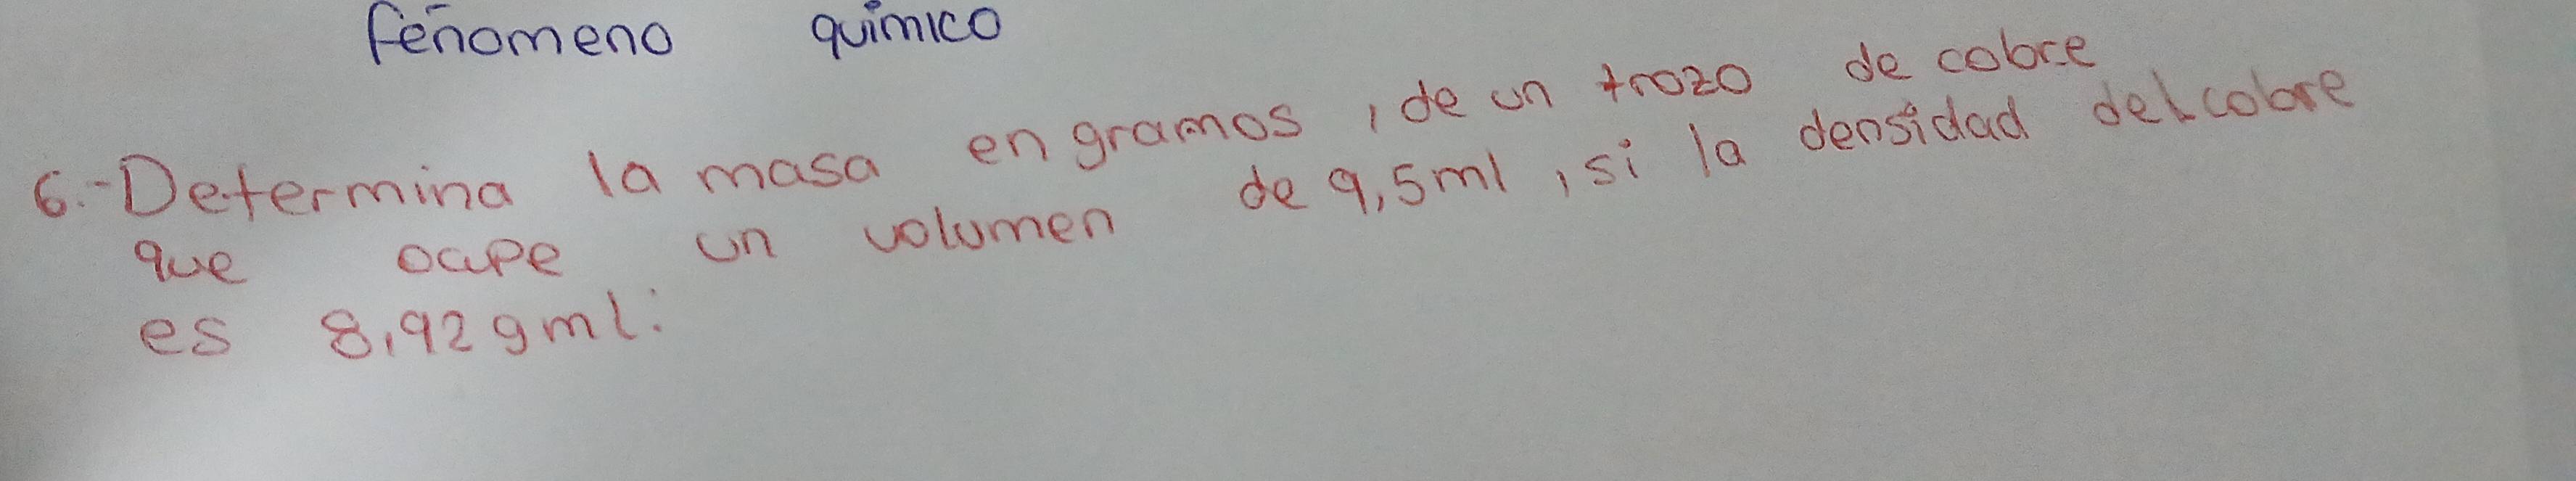 fenomeno químico
6.-Determina la masa en gramos, de un trozo de cobre
que ocupe un volumen de 9,5ml, si la densidad del cobre
es 8,92gml: